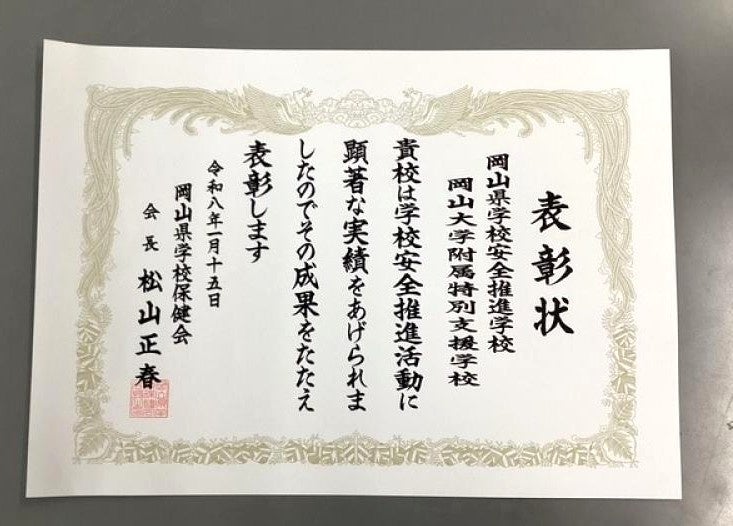 表彰状
岡山県学校安全推進学校
岡山大学附属特別支援学校
貴校は学校安全推進活動に
顕著な実績をあげられま
したのでその成果をたたえ
表彰します
令和八年一月十五日
岡山県学校保健会
会長 松山正春